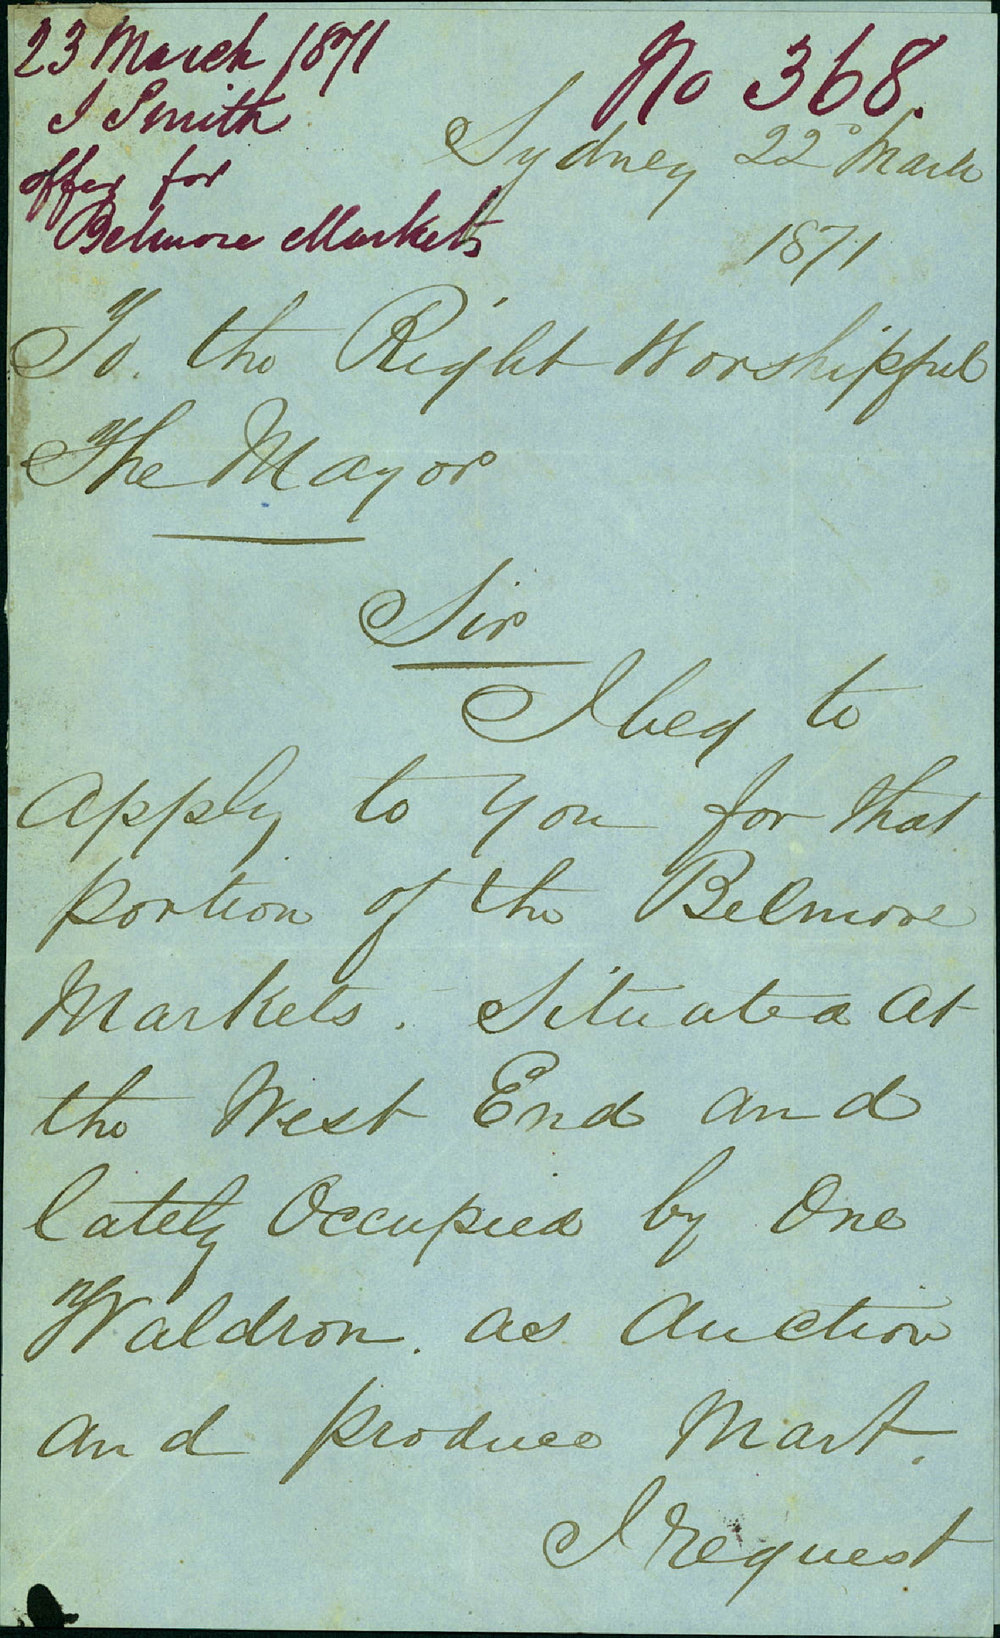 23 March 1871
J Smith
offer for
Belmore Markets
No 368.
Sydney 22d March
1871
To. the Right Worshipful
The Mayor
Sir
I beg to
apply to you for that
portion of the Belmore
Markets. Situated at
the West End and
lately Occupied by One
Waldron. as Auction
and produce Mart.
I request